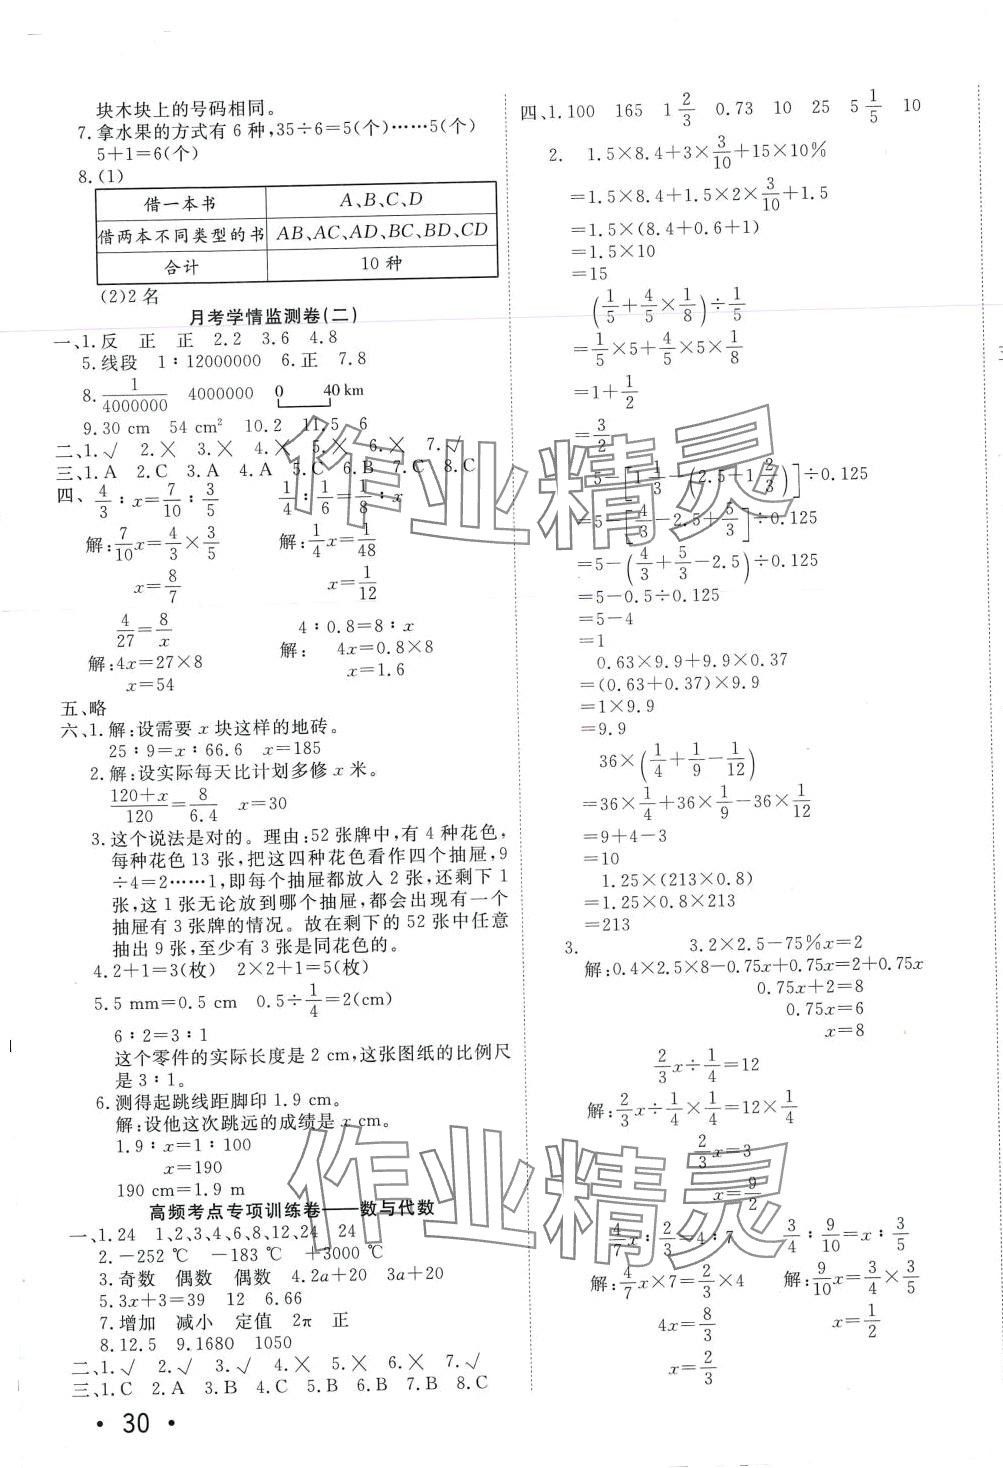 块木块上的号码相同。
7.拿水果的方式有 6 种,35÷6=5(个)……5(个)
5+1=6(个)
8.(1)
借一本书 A、B、C、D
借两本不同类型的书 AB、AC、AD、BC、BD、CD
合计 10 种
(2)2 名
月考学情监测卷(二)
一、1.反 正 正 2.2 3.6 4.8
5.线段 1∶12000000 6.正 7.8
8.1/4000000 4000000 0 40 km
9.30 cm 54 cm² 10.2 11.5 6
二、1.√ 2.× 3.× 4.× 5.× 6.× 7.√
三、1.A 2.C 3.A 4.A 5.C 6.B 7.C 8.C
四、4/3∶x=7/10∶3/5 1/4∶1/6=1/8∶x
解:7/10x=4/3×3/5 解:1/4x=1/48
x=8/7 x=1/12
4/27=8/x 4∶0.8=8∶x
解:4x=27×8 解: 4x=0.8×8
x=54 x=1.6
五、略
六、1.解:设需要 x 块这样的地砖。
25∶9=x∶66.6 x=185
2.解:设实际每天比计划多修 x 米。
120+x/120=8/6.4 x=30
3.这个说法是对的。理由:52 张牌中,有 4 种花色,
每种花色 13 张,把这四种花色看作四个抽屉,9
÷4=2……1,即每个抽屉都放入 2 张,还剩下 1
张,这 1 张无论放到哪个抽屉,都会出现有一个抽
屉有 3 张牌的情况。故在剩下的 52 张中任意
抽出 9 张,至少有 3 张是同花色的。
4.2+1=3(枚) 2×2+1=5(枚)
5.5 mm=0.5 cm 0.5÷1/4=2(cm)
6∶2=3∶1
这个零件的实际长度是 2 cm,这张图纸的比例尺
是 3∶1。
6.测得起跳线距脚印 1.9 cm。
解:设他这次跳远的成绩是 x cm。
1.9∶x=1∶100
x=190
190 cm=1.9 m
高频考点专项训练卷——数与代数
一、1.24 1,2,3,4,6,8,12,24 24
2.-252 ℃ -183 ℃ +3000 ℃
3.奇数 偶数 偶数 4.2a+20 3a+20
5.3x+3=39 12 6.66
7.增加 减小 定值 2π 正
8.12.5 9.1680 1050
二、1.√ 2.√ 3.√ 4.× 5.× 6.× 7.√
三、1.C 2.A 3.B 4.C 5.B 6.B 7.B 8.C
• 30 •
四、1.100 165 1 2/3 0.73 10 25 5 1/5 10
2. 1.5×8.4+3×3/10+15×10%
=1.5×8.4+1.5×2×3/10+1.5
=1.5×(8.4+0.6+1)
=1.5×10
=15
(1/5+4/5×1/8)÷1/5
=1/5×5+4/5×5×1/8
=1+1/2
=3/2
5-[1 1/3-(2.5+1 2/3)]÷0.125
=5-[4/3-2.5+5/3]÷0.125
=5-(4/3+5/3-2.5)÷0.125
=5-0.5÷0.125
=5-4
=1
0.63×9.9+9.9×0.37
=(0.63+0.37)×9.9
=1×9.9
=9.9
36×(1/4+1/9-1/12)
=36×1/4+36×1/9-36×1/12
=9+4-3
=10
1.25×(213×0.8)
=1.25×0.8×213
=213
3. 3.2×2.5-75%x=2
解:0.4×2.5×8-0.75x+0.75x=2+0.75x
0.75x+2=8
0.75x=6
x=8
2/3x÷1/4=12
解:2/3x÷1/4×1/4=12×1/4
2/3x=3
x=9/2
4/7x∶2/3=4∶7 3/4∶9/10=x∶3/5
解:4/7x×7=2/3×4 解:9/10x=3/4×3/5
4x=8/3 x=1/2
x=2/3
作业精灵
作业精灵